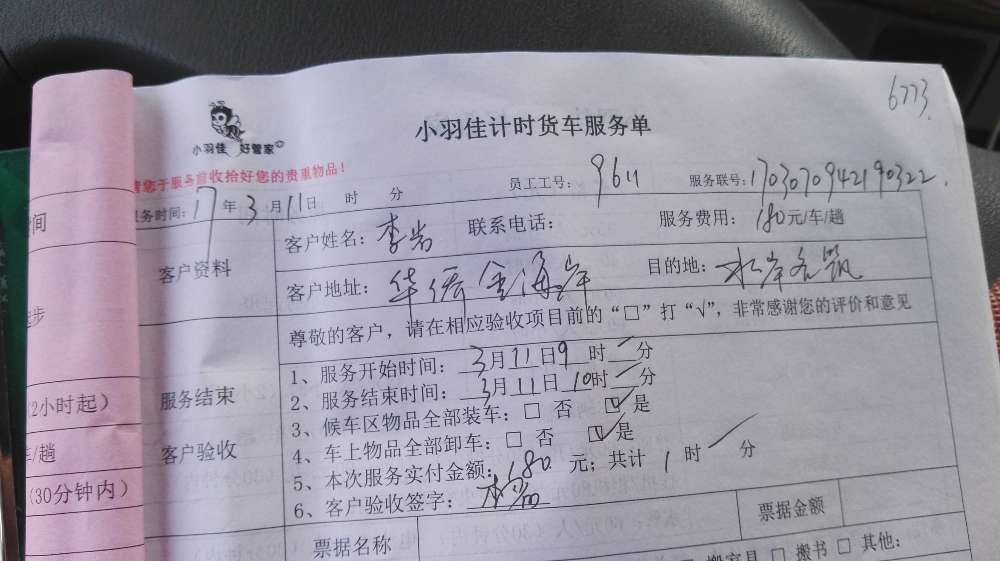 6773
小羽佳计时货车服务单
小羽佳 好管家
请您于服务前收拾好您的贵重物品!
员工工号: 9611 服务联号: 1703070942190322
服务时间: 17 年 3 月 11 日 时 分
客户资料
客户姓名: 李岩 联系电话: 服务费用: 180 元/车/趟
客户地址: 华侨金海岸 目的地: 水岸名筑
尊敬的客户,请在相应验收项目前的“□”打“√”,非常感谢您的评价和意见
服务结束
客户验收
1、服务开始时间: 3月11日9 时 分
2、服务结束时间: 3月11日10时 分
3、候车区物品全部装车: □ 否 ☑ 是
4、车上物品全部卸车: □ 否 ☑ 是
5、本次服务实付金额: 180 元; 共计 1 时 分
6、客户验收签字:
票据名称 票据金额
搬家具 □ 搬书 □ 其他:
间
步
(2小时起)
车/趟
(30分钟内)